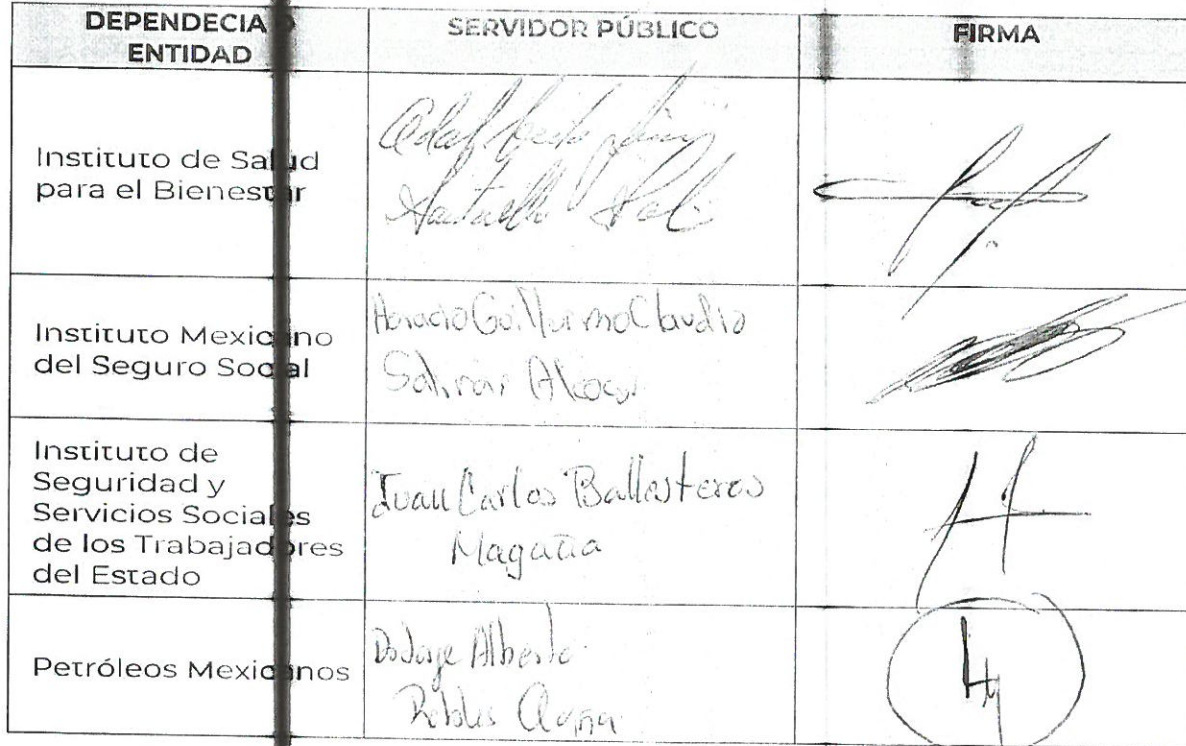 DEPENDECIA O SERVIDOR PÚBLICO FIRMA
ENTIDAD
Instituto de Salud
para el Bienestar
Instituto Mexicano
del Seguro Social
Horacio Guillermo Claudio
Instituto de
Seguridad y
Servicios Sociales
de los Trabajadores
del Estado
Juan Carlos Ballesteros
Magaña
Petróleos Mexicanos
Dr Jorge Alberto
Robles